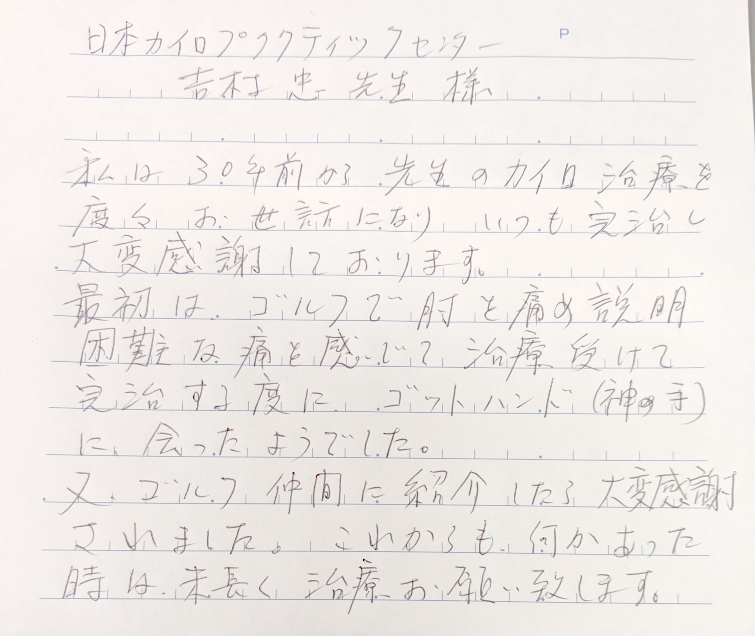 日本カイロプラクティックセンター P
吉村 忠 先生 様
私は 30年前から 先生のカイロ 治療を
度々 お世話になり いつも完治し
大変感謝しております。
最初は、ゴルフで肘を痛め説明
困難な痛を感じて 治療受けて
完治する度に ゴットハンド(神の手)
に会ったようでした。
又、ゴルフ仲間に紹介したら大変感謝
されました。これからも、何かあった
時は、末長く治療お願い致します。